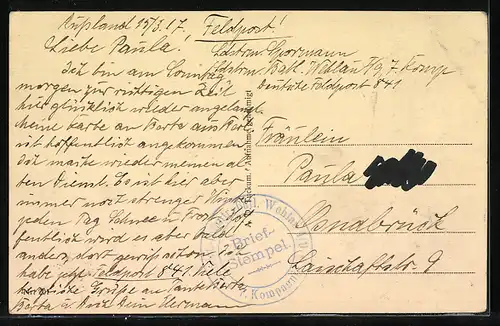 Rußland 15/3.17.
Liebe Paula!
Ich bin am Sonntag
morgen zur richtigen Zeit
hier glücklich wieder angelangt.
Meine Karte an Berta aus
ist hoffentlich angekommen
Ich mache wieder meinen al-
ten Dienst. Es ist hier aber
immer noch strenger Winter
jeden Tag Schnee u Frost. Hof-
fentlich wird es aber bald
anders, dort gewiß schon. Ich
habe jetzt Feldpost 841. Viele
herzliche Grüße an Tante Berta
Berta u. Dein Hermann
Feldpost!
Ldstrm. Spormann
Ldstrm. Batl. Wehlau 7. Komp
Deutsche Feldpost 841
Fräulein
Paula
Osnabrück
Laischaftstr. 9
Brief-
Stempel
Kompagnie